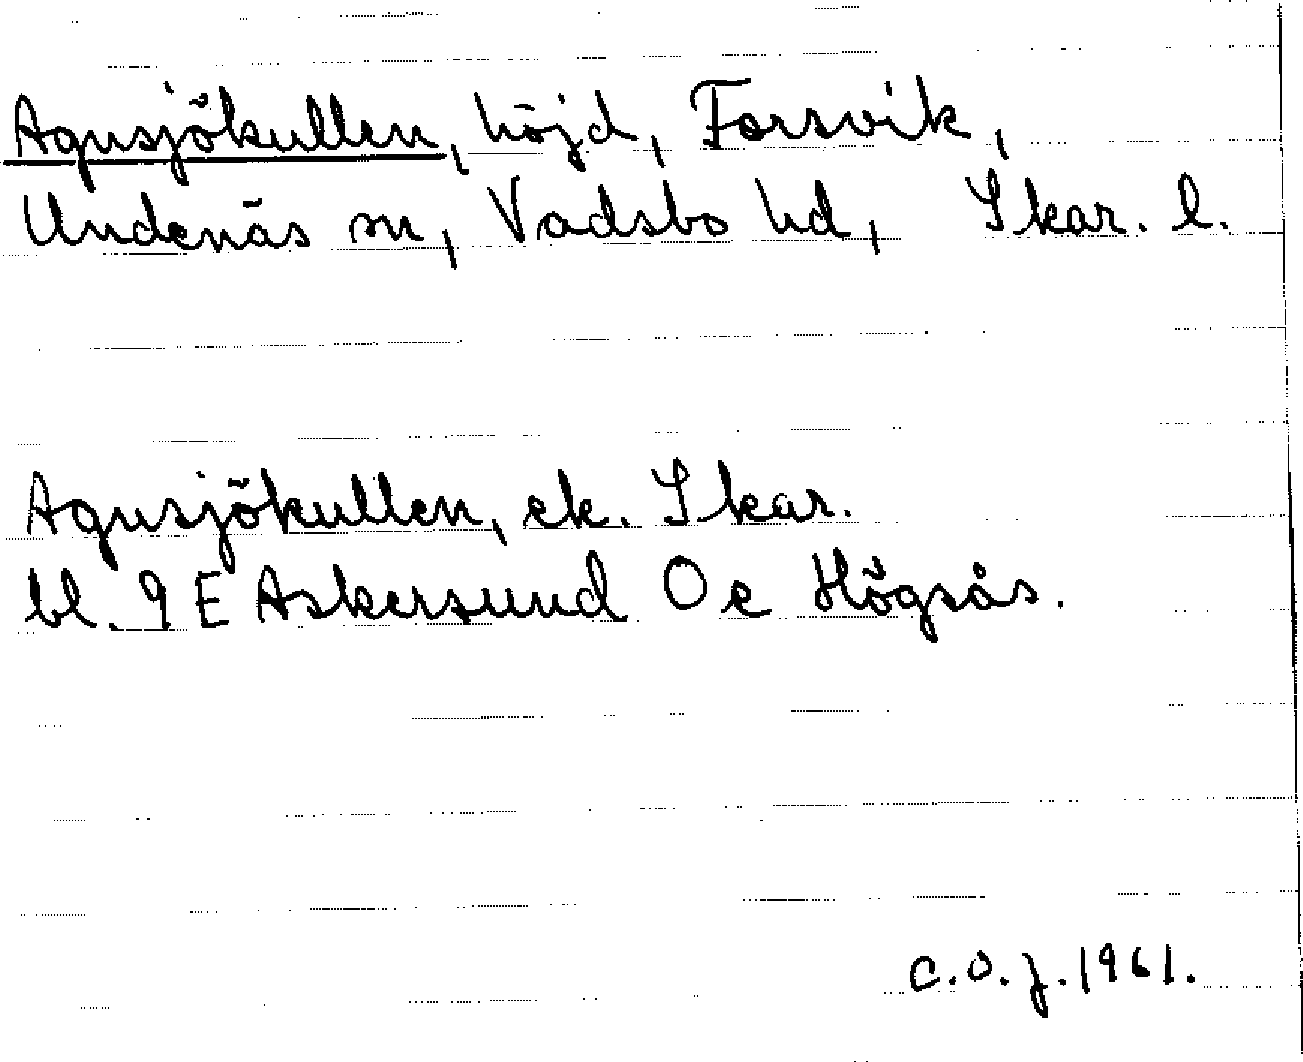 Agnsjökullen, höjd, Forsvik,
Undenäs sn, Vadsbo hd, Skar. l.
Agnsjökullen, ek. Skar.
bl. 9 E Askersund O e Högsås.
C.O.J. 1961.